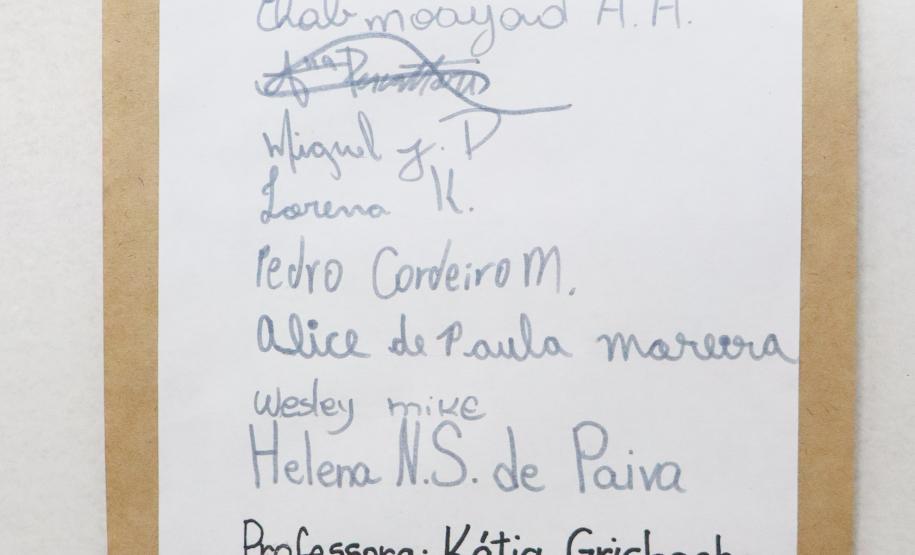 Chab moayad A. A.
Miguel J. D
Lorena K.
Pedro Cordeiro M.
Alice de Paula moreira
wesley mike
Helena N.S. de Paiva
Professora: Kátia